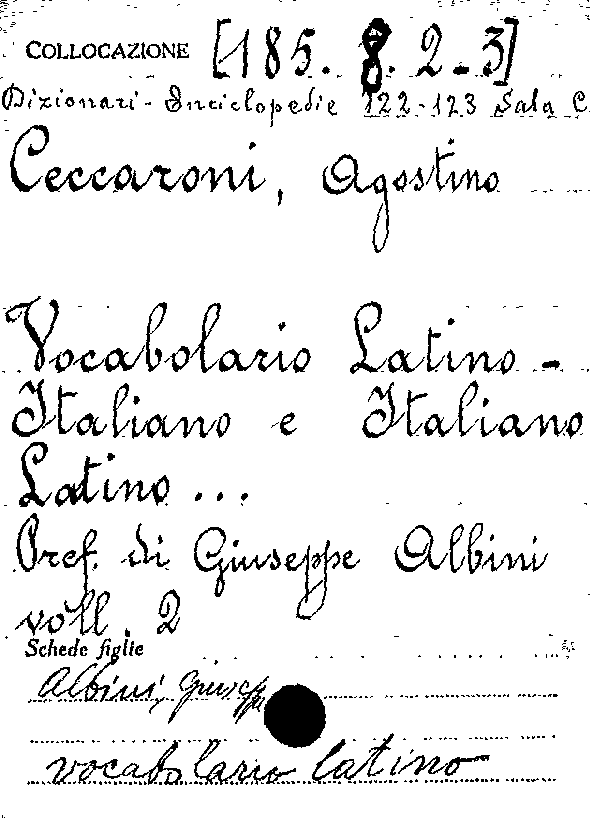 COLLOCAZIONE [185. 8. 2 - 3]
Dizionari - Enciclopedie 122 - 123 Sala C
Ceccaroni, Agostino
Vocabolario Latino -
Italiano e Italiano
Latino ...
Pref. di Giuseppe Albini
voll. 2
Schede figlie
Albini, Giuseppe
vocabolario latino